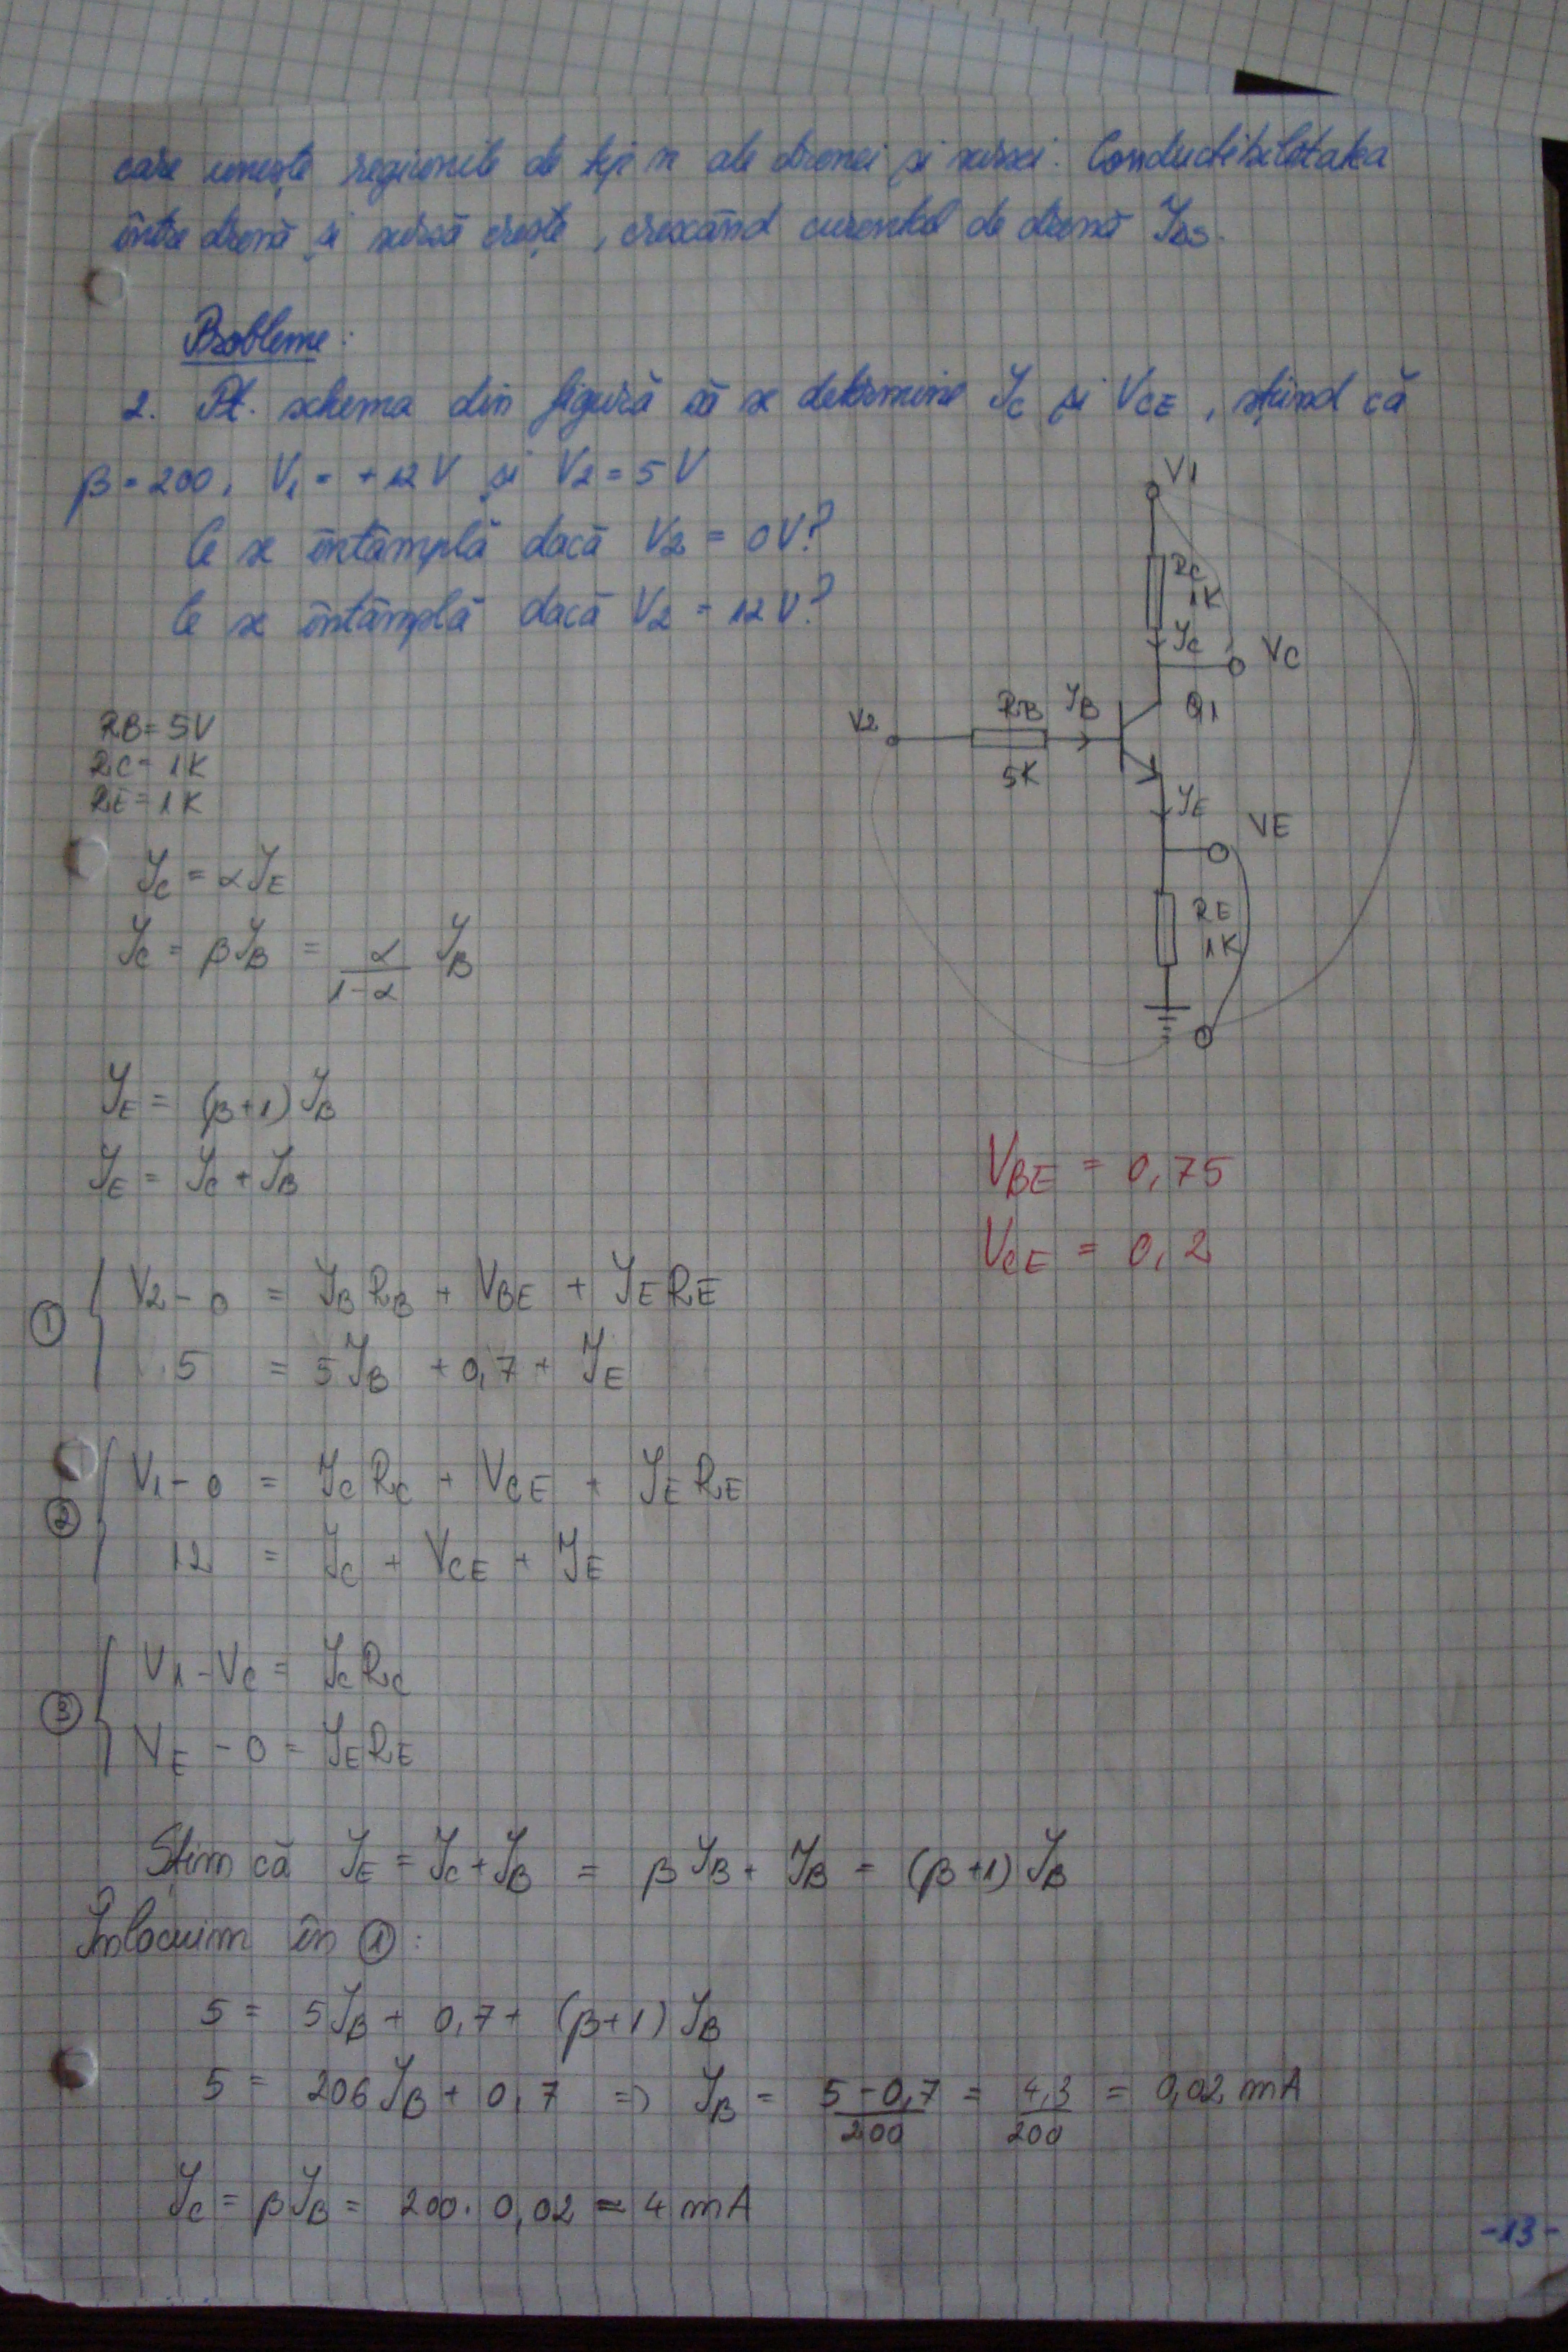 care unește regiunile de tip n ale drenei și sursei. Conductibilitatea
între drenă și sursă crește, crescând curentul de drenă IDS.
Probleme:
2. Pt. schema din figură să se determine IC și VCE, știind că
β = 200, V1 = +12V și V2 = 5V
Ce se întâmplă dacă V2 = 0V?
Ce se întâmplă dacă V2 = 12V?
V1
RC
1K
IC
VC
V2
RB
IB
Q1
5K
IE
VE
RE
1K
RB = 5V
RC = 1K
RE = 1K
IC = αIE
IC = βIB = α/(1-α) IB
IE = (β+1) IB
IE = IC + IB
VBE = 0,75
VCE = 0,2
① V2 - 0 = IB RB + VBE + IE RE
5 = 5IB + 0,7 + IE
② V1 - 0 = IC RC + VCE + IE RE
12 = IC + VCE + IE
③ V1 - VC = IC RC
VE - 0 = IE RE
Știm că IE = IC + IB = βIB + IB = (β+1) IB
Înlocuim în ①:
5 = 5IB + 0,7 + (β+1) IB
5 = 206 IB + 0,7 => IB = (5-0,7)/200 = 4,3/200 = 0,02 mA
IC = βIB = 200 · 0,02 = 4 mA
-13-